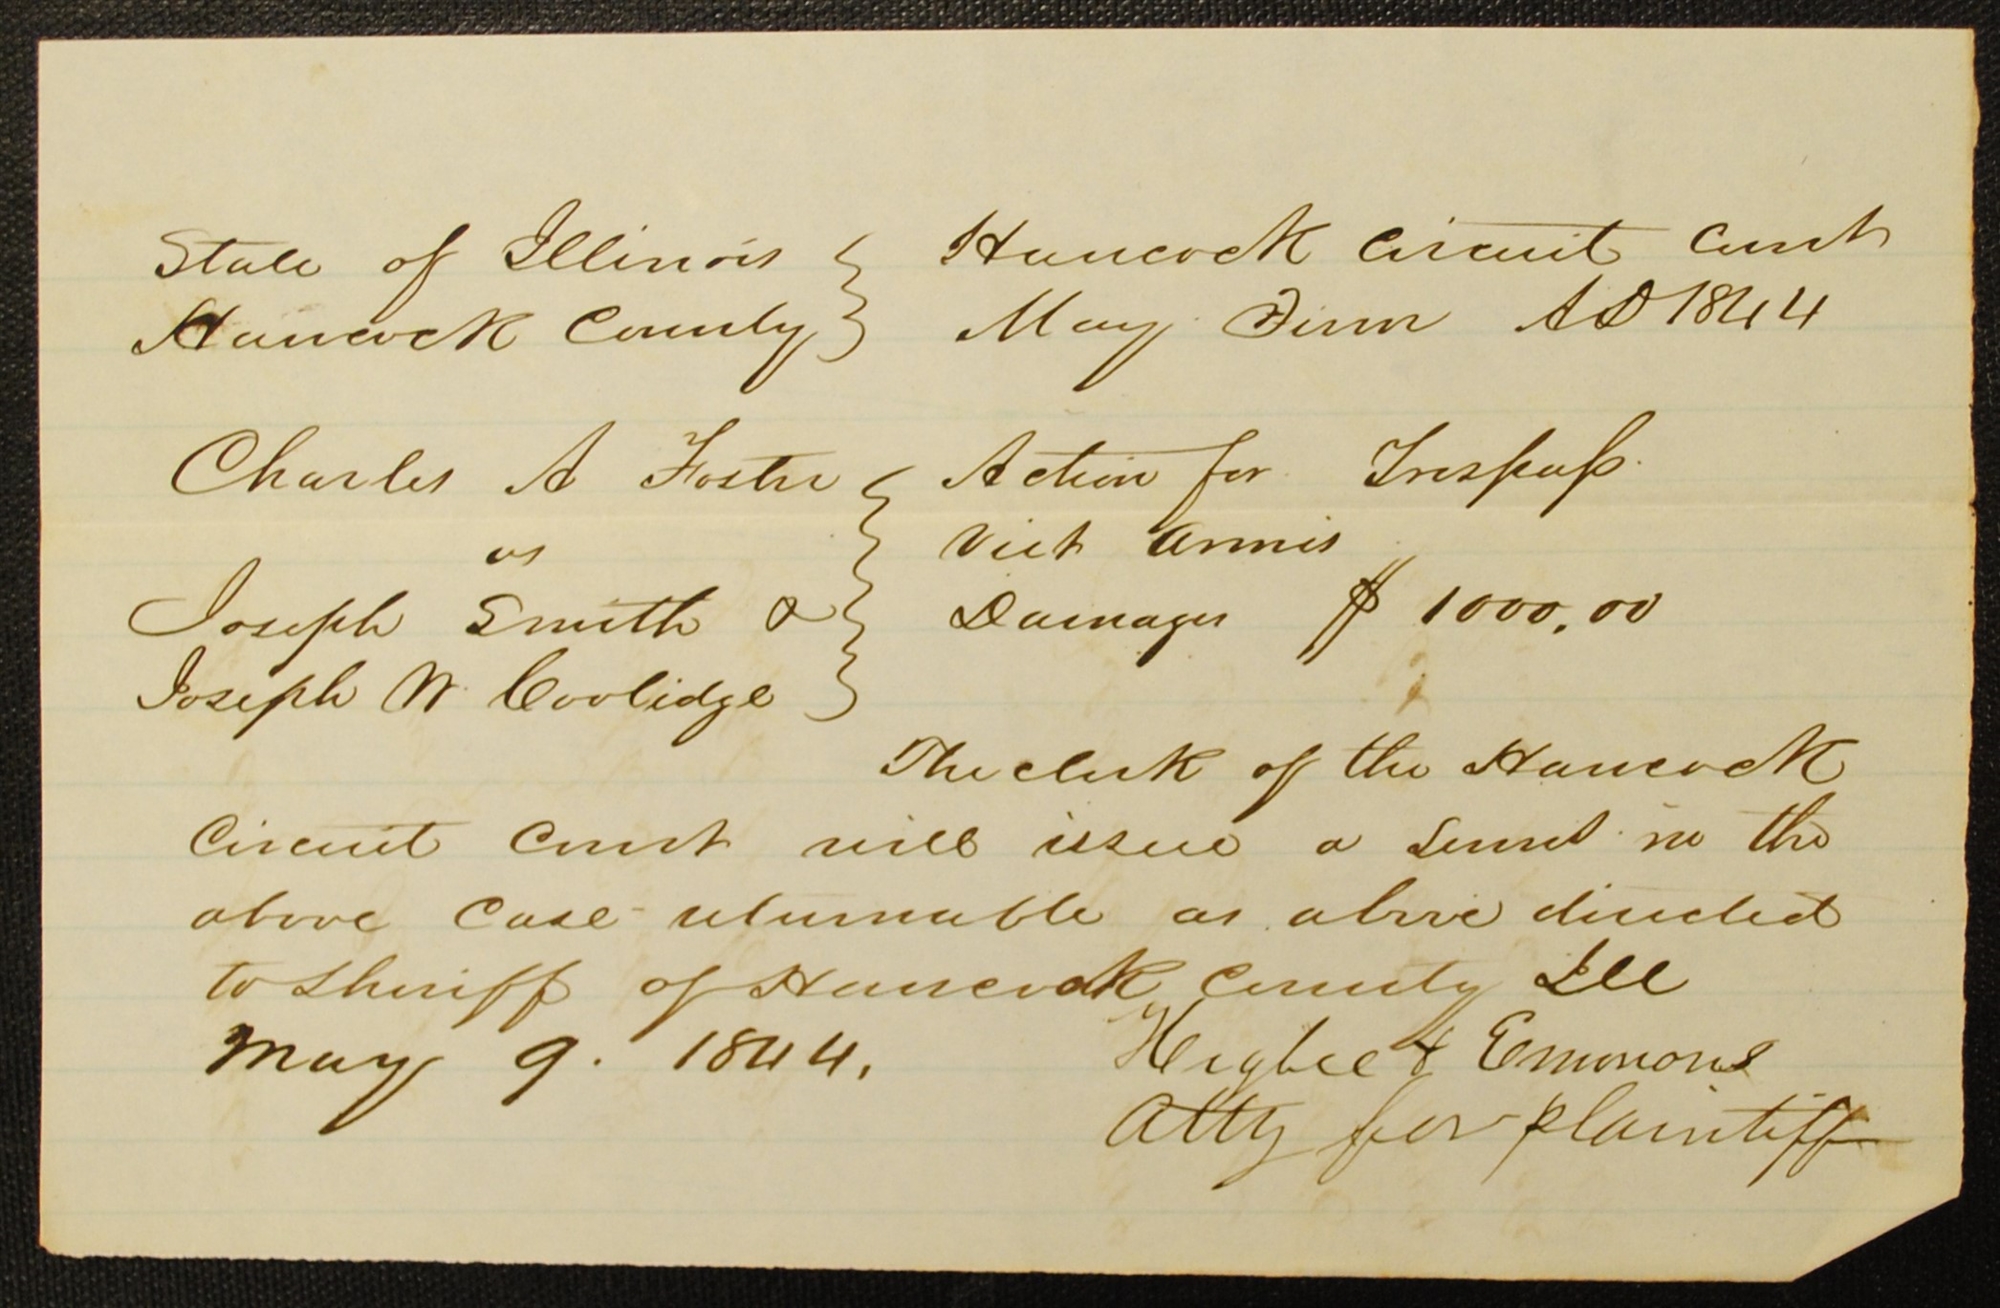 State of Illinois } Hancock Circuit Court
Hancock County } May Term AD 1844
Charles A Foster } Action for Trespass
vs } Vi et Armis
Joseph Smith & } Damages $1000.00
Joseph W. Coolidge }
The clerk of the Hancock
Circuit Court will issue a in the
above Case returnable as above directed
to Sheriff of Hancock County Ill
May 9. 1844. Higbee & Emmons
Atty for plaintiff